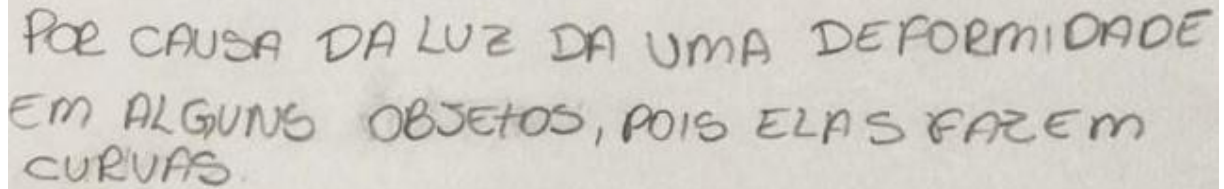 POR CAUSA DA LUZ DA UMA DEFORMIDADE
EM ALGUNS OBJETOS, POIS ELAS FAZEM
CURVAS.